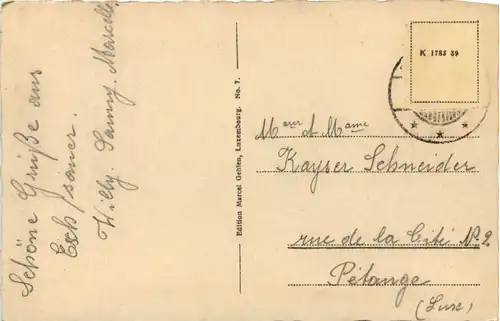 Schöne Grüße aus
Esch/sauer.
Willy. Sanny. Marcelle
Edition Marcel Gehlen, Luxembourg. No. 7.
K 1783 39
Mseur et Mame
Kayser Schneider
rue de la Cité No 2
Pétange
(Lux)